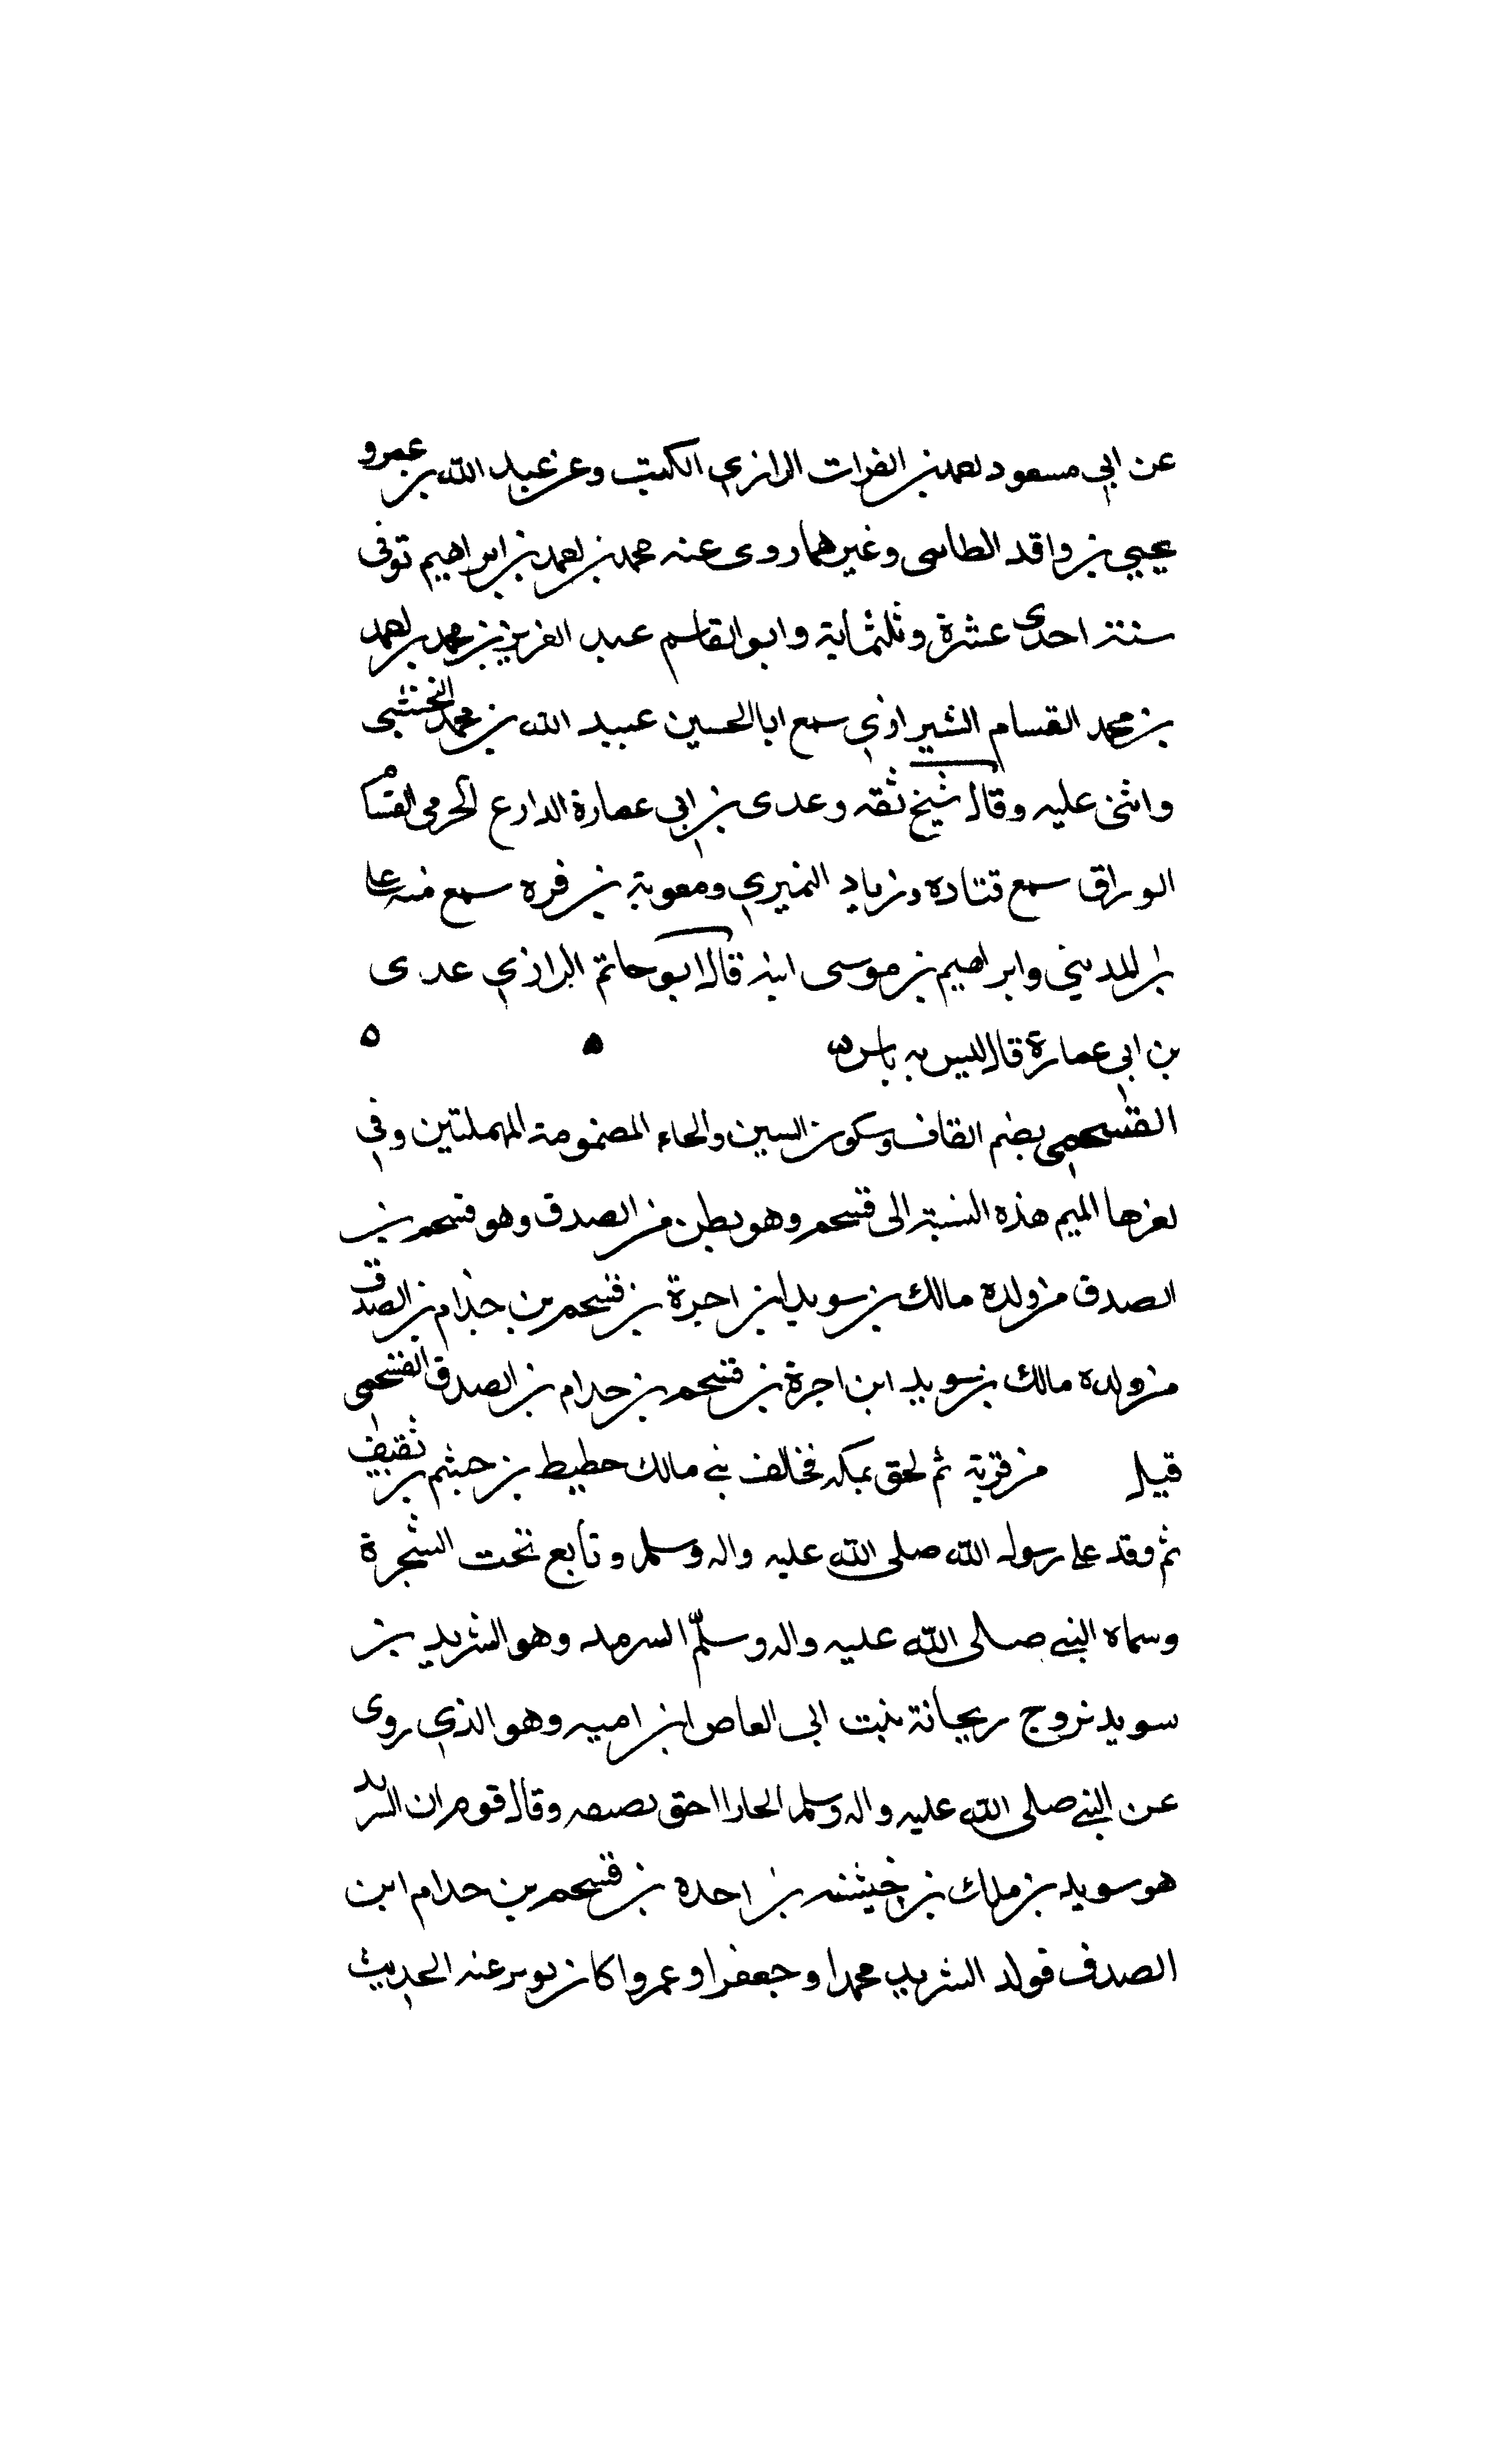 عن ابي مسعود احمد بن الفرات الرازي الكتب وعن عبد الله بن عمرو
يحيى بن واقد الطاسى وغيرهما روى عنه محمد بن احمد بن ابراهيم توفى
سنة احدى عشرة وثلثماية وابو القاسم عبد العزيز بن محمد بن احمد
بن محمد القسام الشيرازي سمع ابا الحسين عبيد الله بن محمد
واثنى عليه وقال شيخ ثقه وعدى بن ابي عمارة الدارع الجرمى القسام
الوراق سمع قتادة وزياد النميري ومعوية بن قره سمع منه على
بن المديني وابراهيم بن موسى ابنه قال ابو حاتم الرازي عدى
بن ابي عمارة قال ليس به باس
القسحمى بضم القاف وسكون السين والحاء المضمومة المهملتين وفي
اخرها الميم هذه النسبة الى قسحم وهو بطن من الصدف وهو قسحم بن
الصدف من ولده مالك بن سويد ابن اجرة بن قسحم بن جذام بن الصدف
من ولده مالك بن سويد ابن اجرة بن قسحم بن حدام بن الصدف القسحمى
قيل من قرية ثم لحق بمكه فخالف بني مالك حطيط بن جشم بن ثقيف
ثم وفد على رسول الله صلى الله عليه واله وسلم وتابع تحت الشجرة
وسماه النبي صلى الله عليه واله وسلّم السرمد وهو الشريد بن
سويد تزوج ريحانة بنت ابي العاص ابن اميه وهو الذي روى
عن النبي صلى الله عليه واله وسلم الجار احق بصقبه وقال قوم ان الشريد
هو سويد بن ملك بن بن احده بن قسحم بن حدام ابن
الصدف فولد الشريد محمدا وجعفرا وعمروا كان يوثر عنه الحديث